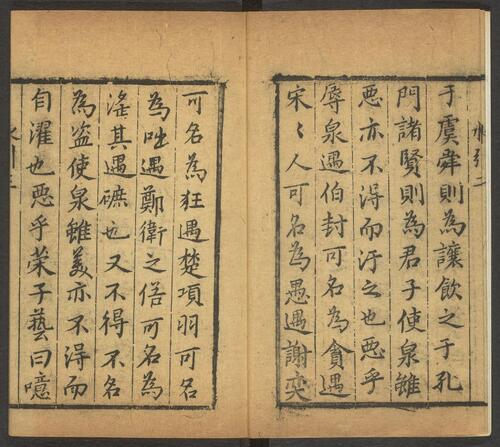 于虞舜則為讓飲之于孔
門諸賢則為君子使泉雖
惡亦不淂而汙之也惡乎
辱泉遇伯封可名為貪遇
宋〻人可名為愚遇謝奕
可名為狂遇楚項羽可名
為咄遇鄭衛之俗可名為
滛其遇䃺也又不得不名
為盗使泉雖美亦不淂而
自濯也惡乎荣子藝曰噫